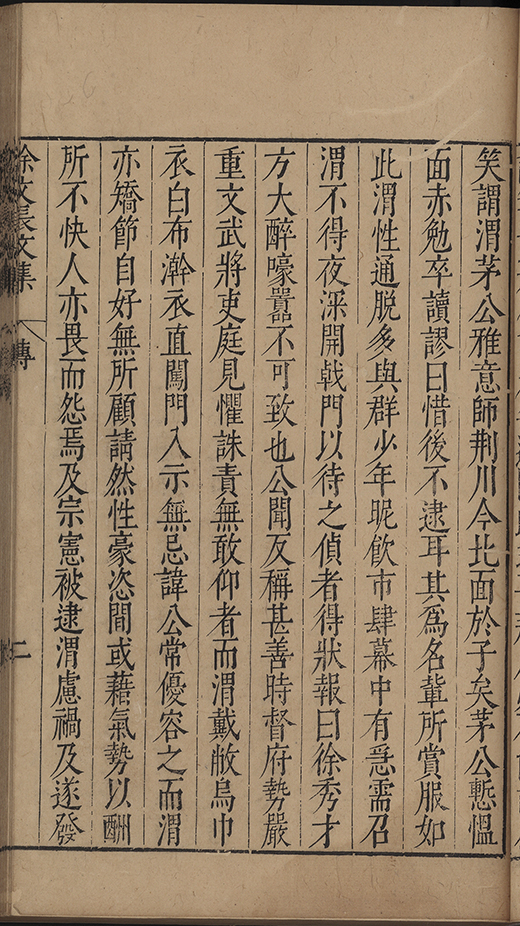 笑謂渭茅公雅意師荆川今北面於子矣茅公慙慍
面赤勉卒讀謬曰惜後不逮耳其爲名軰所賞服如
此渭性通脫多與群少年昵飮市肆幕中有急需召
渭不得夜深開戟門以待之偵者得狀報曰徐秀才
方大醉嚎嚻不可致也公聞反稱甚善時督府勢嚴
重文武將吏庭見懼誅責無敢仰者而渭戴敝烏巾
衣白布澣衣直闖門入示無忌諱公常優容之而渭
亦矯節自好無所顧請然性豪恣間或藉氣勢以酬
所不快人亦畏而怨焉及宗憲被逮渭慮禍及遂發
徐文長文集 傳 二